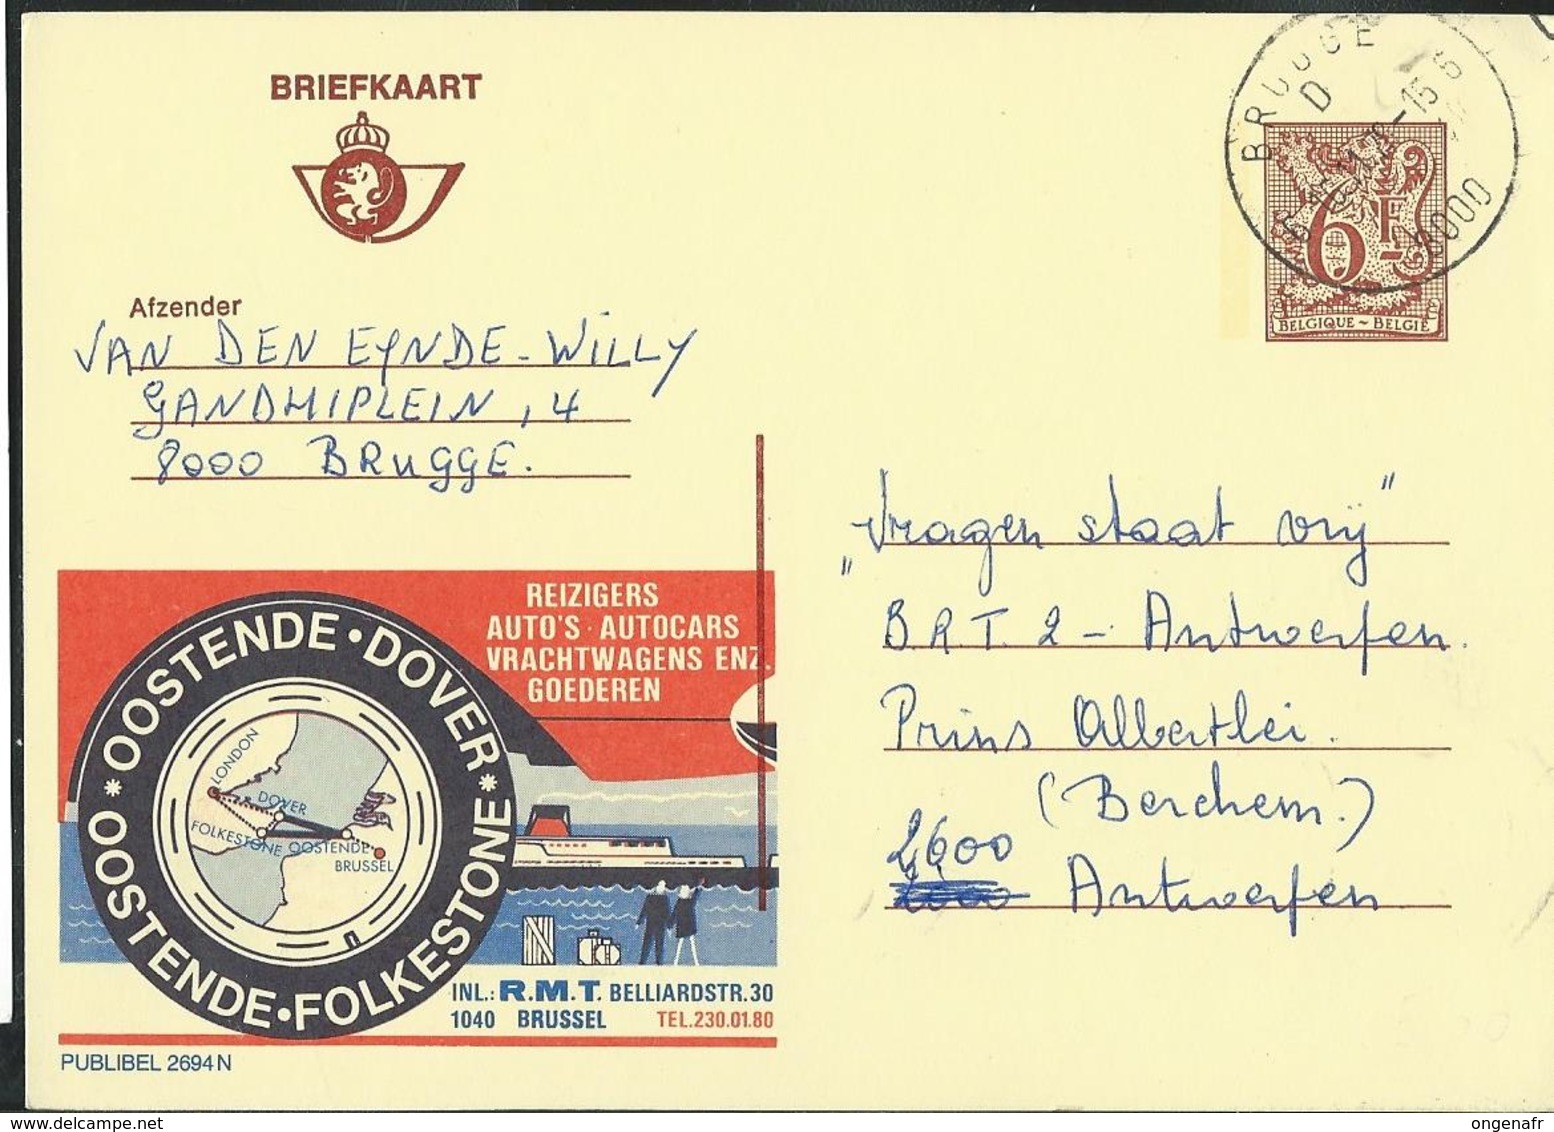 BRIEFKAART
BRUGGE
D
-15
8000
6F
BELGIQUE ~ BELGIË
Afzender
VAN DEN EYNDE - WILLY
GANDHIPLEIN, 4
8000 BRUGGE.
"Vragen staat vrij"
B.R.T. 2 - Antwerpen.
Prins Albertlei.
(Berchem.)
2600 Antwerpen.
REIZIGERS
AUTO'S · AUTOCARS
VRACHTWAGENS ENZ.
GOEDEREN
* OOSTENDE · DOVER *
OOSTENDE · FOLKESTONE
LONDON
DOVER
FOLKESTONE
OOSTENDE
BRUSSEL
INL.: R.M.T. BELLIARDSTR.30
1040 BRUSSEL TEL.230.01.80
PUBLIBEL 2694 N
www.delcampe.net
ongenafr